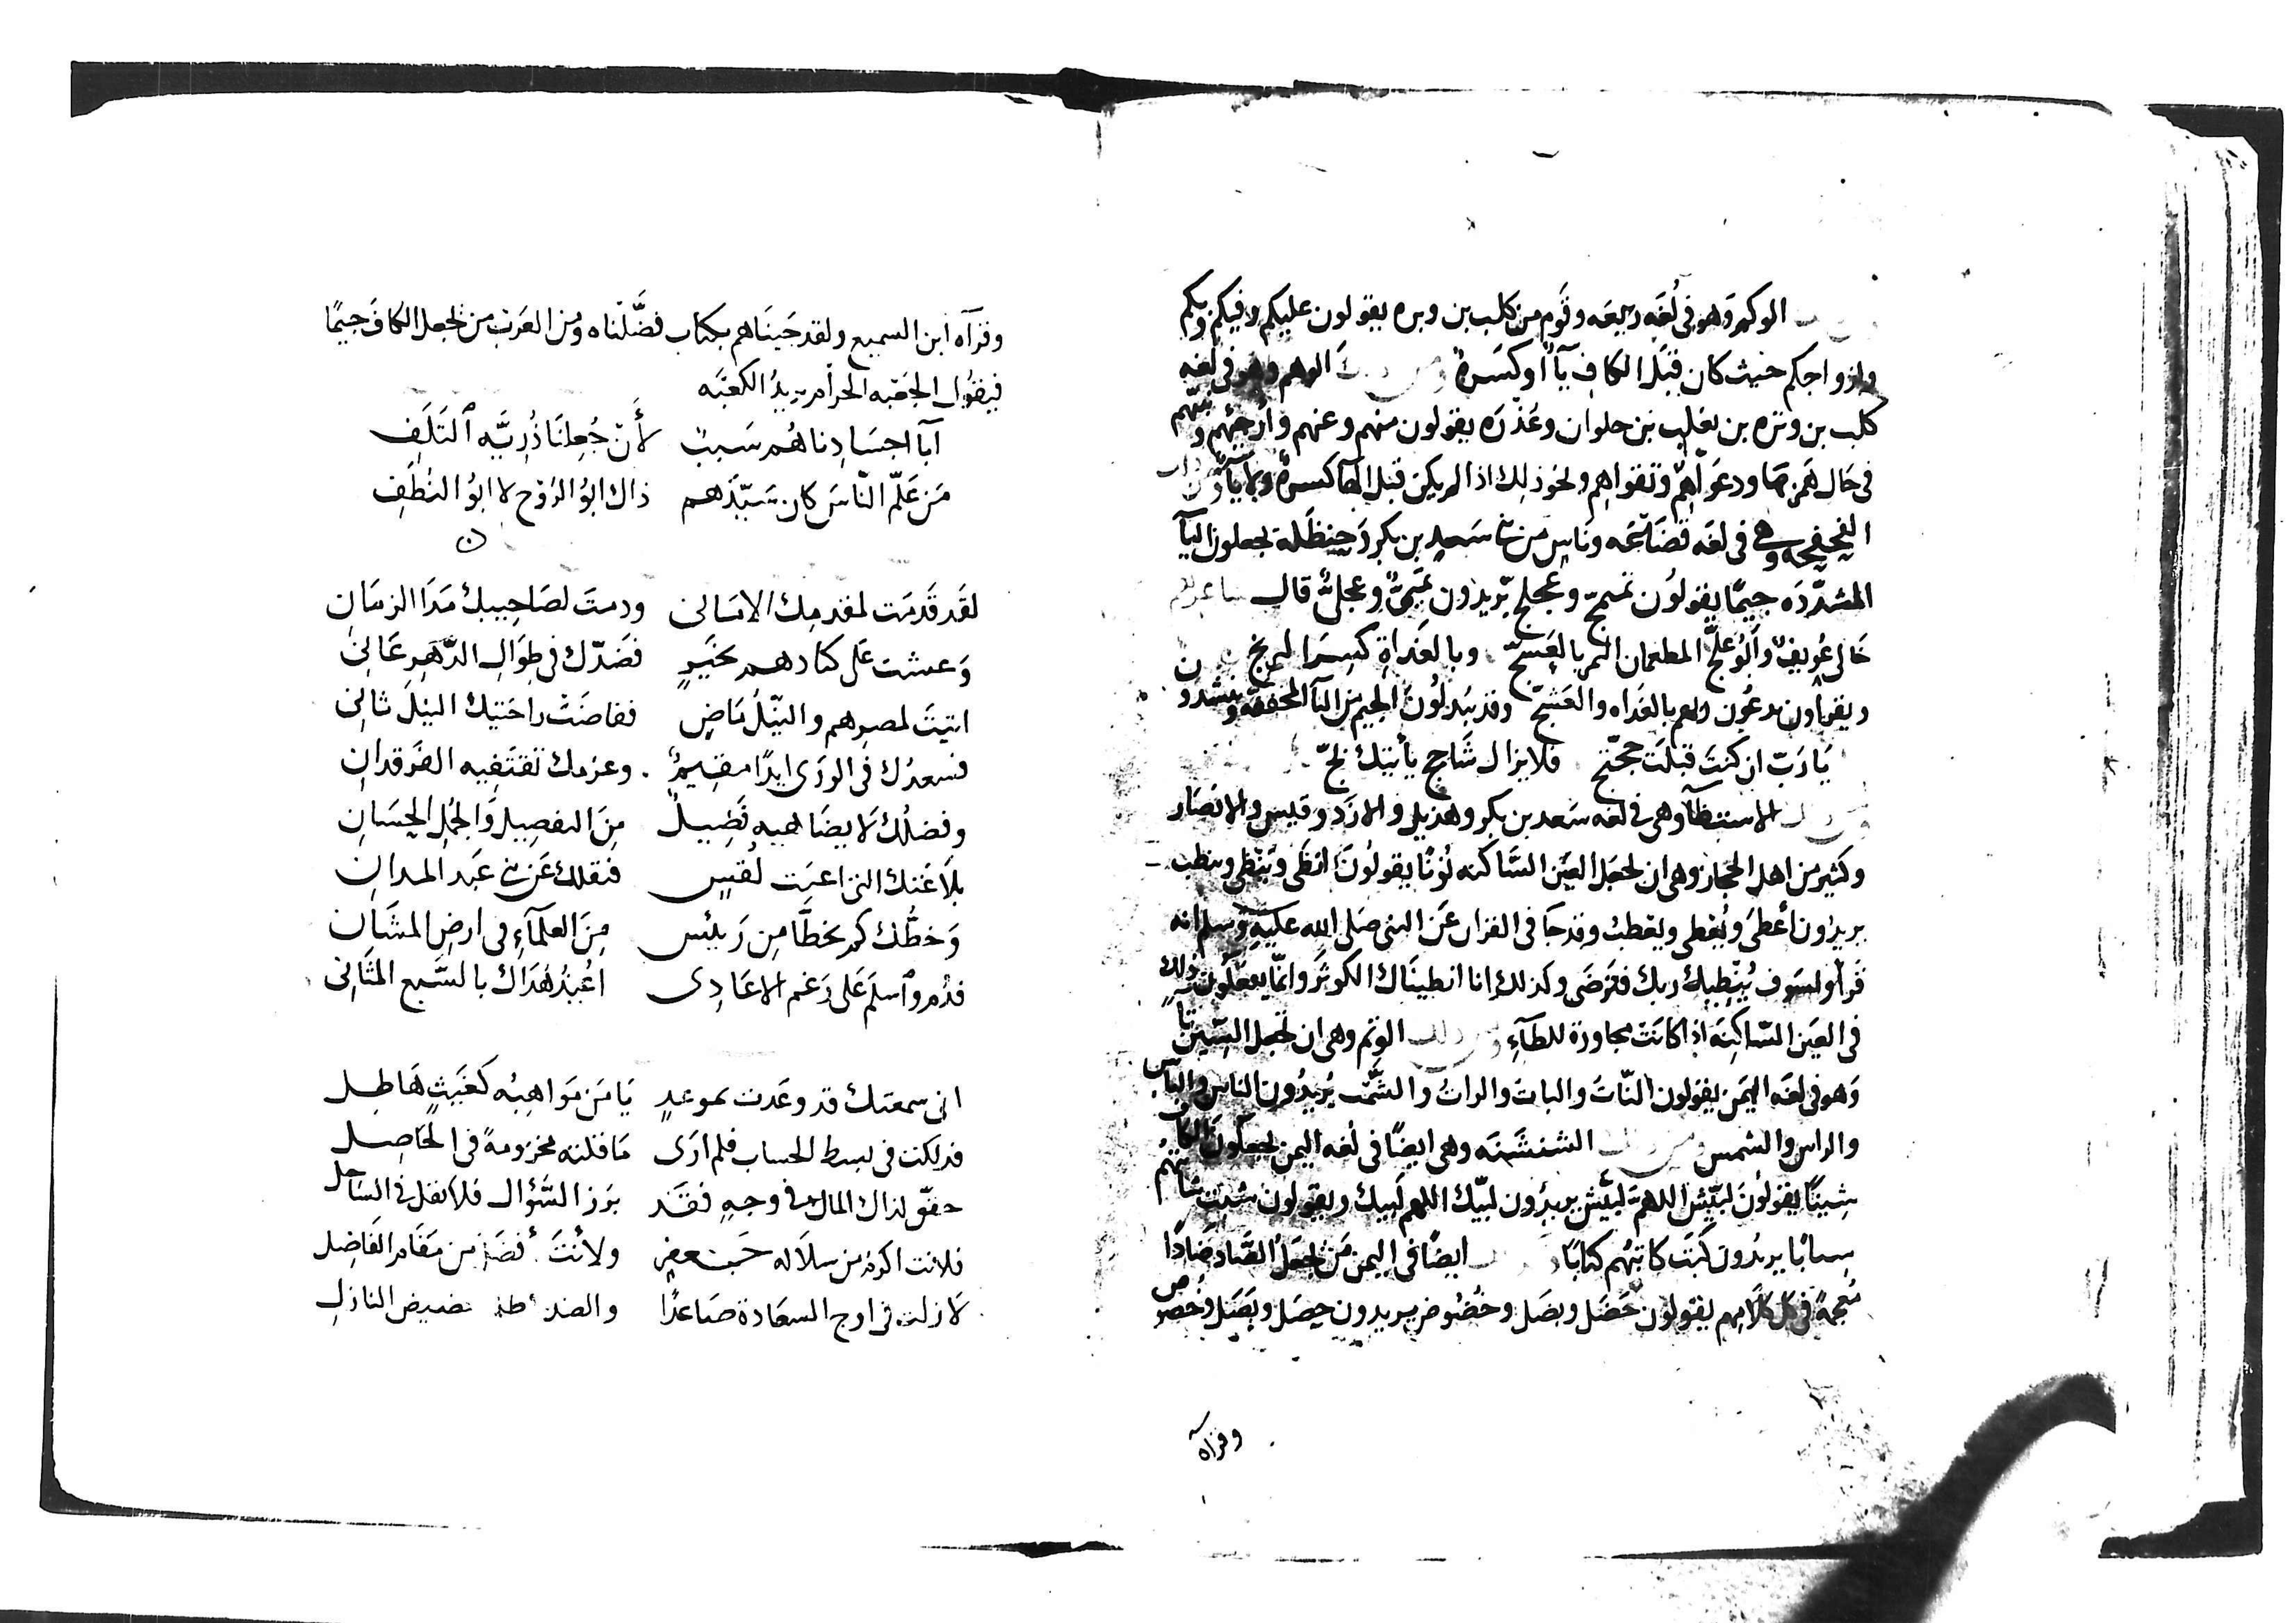 الوكم وهو في لُغَه ربيعَه وقَوم من كلب بن وبره يقولون عليكم وفيكم وبكم
وازواجكم حيث كان قبَل الكاف يآءٌ او كسَرةٌ الوهم وهو في لغه
كلب بن وبره بن تغلب بن حلوان وعُذرَه يقولون منهم وعنهم
في حَال ودعَواهم وتقواهم ونحو ذلك اذا لم يكن قبل الهآ كسرةٌ ولا يآءٌ
الفحفحه وهي في لغه قضَاعَه ونَاس من بني سَعدٍ بن بكر وحنظَلة يجعلون اليآ
المشدّدَه جيمًا يقولُون تميمجّ وعجلجّ يُريدُون تميميٌّ وعجليٌّ قال شاعرهم
خَالى عُوَيفٌ وَابُو عَلجّ المطعمان اللحم بالعَشجّ وبالغَداةِ كِسَرَ البرنجّ
ويقولون يدعُون ربهم بالغَداه والعَشجّ وقد يُبدلُونَ الجيم من اليآ المخففه وينشدون
يَا رَبّ ان كنتَ قبلتَ حجّتج فلا يزال شَاحج يأتيك بجّ
الاستنطآ وهي في لغه سَعد بن بكر وهذيل والازد وقيس والانصَار
وكثير من اهل الحجاز وهي ان تجعَل العَين السَّاكنه نُونًا يقولُونَ انطَى ويُنطى وينطيـ
يريدُون أعطَى ويُعطى ويعطيـ وقد جَا في القران عَن النبى صَلى الله عليَهِ وَسلم انه
قَرأ ولسَوف يُنطِيك ربك فتَرضَى وكذلك انا انطينَاك الكوثرَ وانمّا يفعلُون ذلك
في العَين السّاكِنَه اذا كانَتْ مجاورة للطآءِ ومن ذلك الوتم وهى ان تجعل السِّين تآ
وَهو في لغَه اليمَن يقولون النّاتَ والباتَ والراتُ والشَّمْت يُريدُون الناس والبأس
والراس والشمس ومن ذلك الشنشَنَه وهي ايضًا في لغه اليمن يجعلُونَ الكاف
شِينًا يقولُونَ لبَّيش اللهمّ لبَّيش يريدُون لبّيك اللهم لبيك ويقولون شتبَ شاتبهُم
شتابًا يريدُون كتَبَ كاتبهُم كتابًا ايضًا في اليمن مَنْ يجعَلُ الصَّاد ضَادًا
مُعجمةً في كل كلامهم يقولون حَضَل وبضَل وخُضُوض يريدون حصَل وبَصَل وخُصوص
وقرآه
وقرَآه ابن السميع ولقد جَينَاهم بكتاب فضَّلناه ومن العَرب من يجعل الكاف جيمًا
فيقوُل الجَعبَه الحرام يريدُ الكعبَه
آبآ اجسَادِنا هُم سَببٌ لأنْ جُعِلنَا ذُرِيَّه التَلَفِ
مَن عَلّم النّاسَ كان سَيّدَهم ذاك ابوُ الرُوْح لا ابوُ النُطَفِ
لقَد قَدمَت لمقدمِك الامَانى ودمتَ لصَاحِبيك مَدَا الزمَانِ
وَعشت على كنَادهم بخَيرٍ فضَدّك في طِوَالِ الدَّهرِ عَانِى
اتيتَ لمصرهم والنيّلُ مَاضٍ ففاضَتْ راحَتيك النيْلَ ثانِى
فسعدُك في الورَى ابدًا مقيمٌ وعزمك تقتَفيه الفَرقدانِ
وفضلُك لا يضَاهيه فَضِيلٌ مِنَ التفصِيلِ وَالجُمَل الحِسَانِ
بلاغَتك التى اعيَت لقُسٍ فنقلك عَن بني عَبد المدانِ
وَخطُّك كم يخطَّا مِن رَئيس مِنَ العلمآءِ في ارض المشَانِ
فدُم وٱسلم عَلى رَغم الاعَادِى اُعيذُ هُدَاك بالسَّبع المثَانى
انى سمعتك قد وعَدت بموعدٍ يَا مَن مَوَاهِبُه كَغَيثٍ هَاطِل
فذلكت في بسط الحساب فلم ارَى مَا قلته مخزومةً في الحَاصِل
حقّق لذاك المال في وجهٍ فقَد بَرَز السَّؤال فلا تقل في السَاحل
فلانت اكرمُ من سلاله جَعفرٍ ولأنْتَ أفضَلُ من مَقَام الفَاضِل
لا زلت في اوج السعَادة صَاعدًا والضد النازلِ